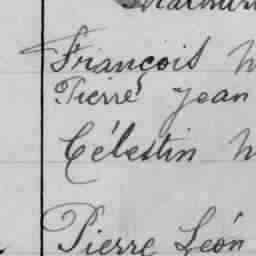 François
Pierre Jean
Célestin
Pierre Léon